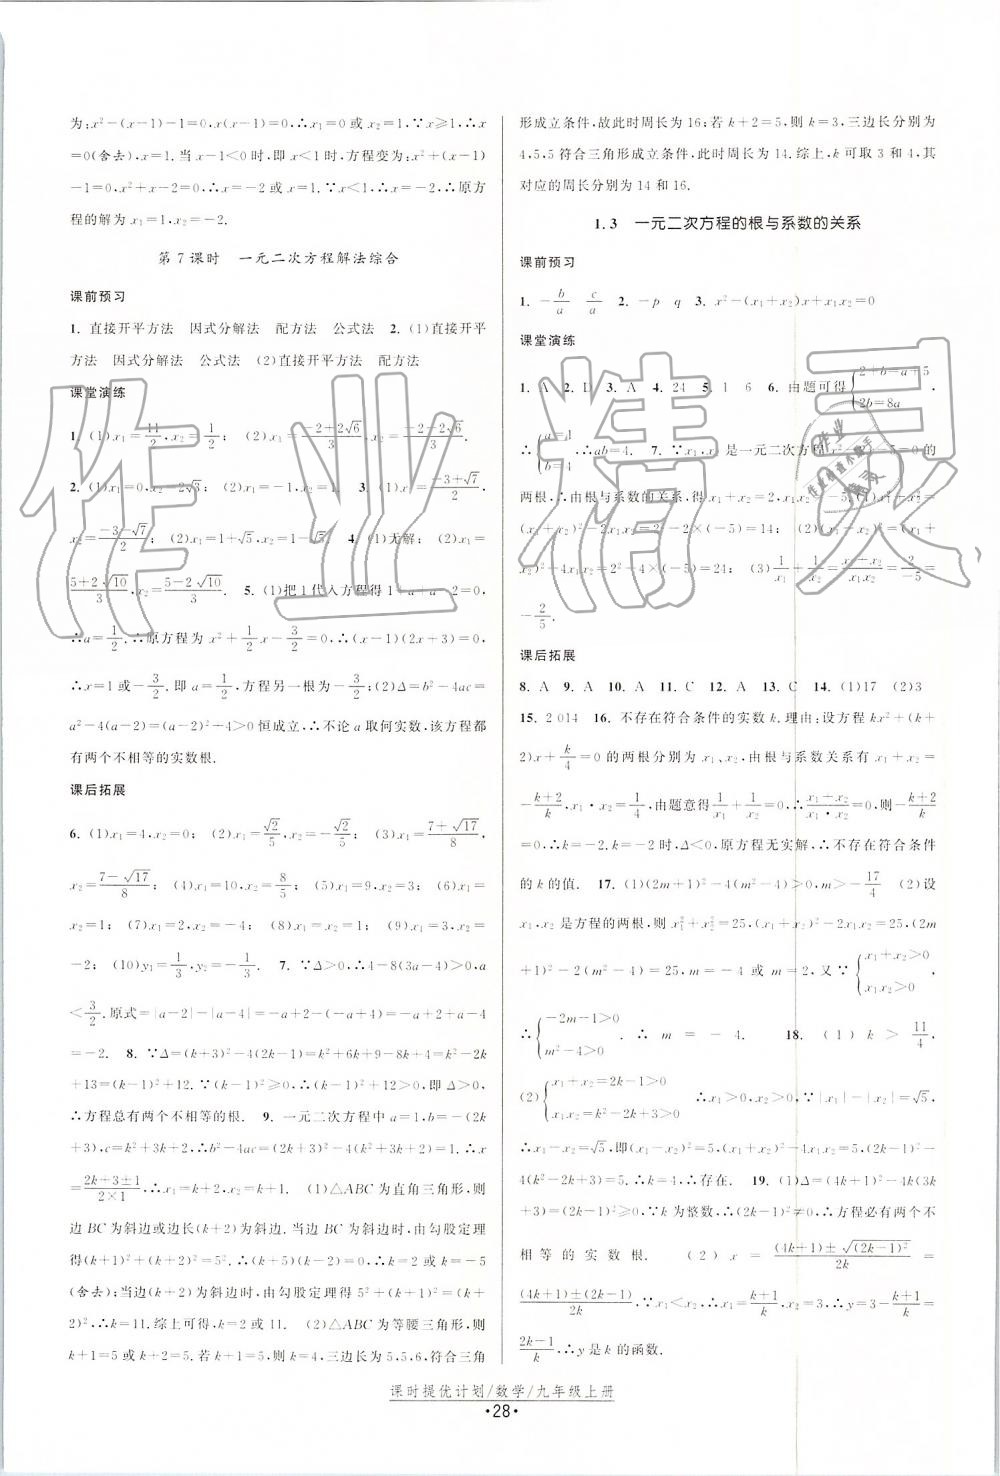 为:x²-(x-1)-1=0,x(x-1)=0,∴x₁=0或x₂=1.∵x≥1,∴x
=0(舍去),x=1.当x-1<0时,即x<1时,方程变为:x²+(x-1)
-1=0,x²+x-2=0,∴x=-2或x=1.∵x<1,∴x=-2,∴原方
程的解为x₁=1,x₂=-2.
第7课时 一元二次方程解法综合
课前预习
1. 直接开平方法 因式分解法 配方法 公式法 2. (1)直接开平
方法 因式分解法 公式法 (2)直接开平方法 配方法
课堂演练
1. (1)x₁=11/2,x₂=1/2; (2)x₁=(-2+2√6)/3,x₂=(-2-2√6)/3.
2. (1)x₁=0,x₂=2√3; (2)x₁=x₂=1. 3. (1)x₁=(-3+√7)/2,
x₂=(-3-√7)/2; (2)x₁=1+√5,x₂=1-√5. 4. (1)无解; (2)x₁=
(5+2√10)/3,x₂=(5-2√10)/3. 5. (1)把1代入方程得1+a+a-2=0,
∴a=1/2.∴原方程为x²+1/2x-3/2=0,∴(x-1)(2x+3)=0,
∴x=1或-3/2.即a=1/2,方程另一根为-3/2;(2)Δ=b²-4ac=
a²-4(a-2)=(a-2)²+4>0恒成立,∴不论a取何实数,该方程都
有两个不相等的实数根.
课后拓展
6. (1)x₁=4,x₂=0; (2)x₁=√2/5,x₂=-√2/5; (3)x₁=(7+√17)/8,
x₂=(7-√17)/8; (4)x₁=10,x₂=8/5; (5)x₁=9,x₂=3; (6)x₁=
x₂=1; (7)x₁=2,x₂=-4; (8)x₁=x₂=1; (9)x₁=5,x₂=
-2; (10)y₁=1/3,y₂=-1/3. 7. ∵Δ>0,∴4-8(3a-4)>0,a
<3/2.原式=|a-2|-|a-4|=-a+2-(-a+4)=-a+2+a-4
=-2. 8. ∵Δ=(k+3)²-4(2k-1)=k²+6k+9-8k+4=k²-2k
+13=(k-1)²+12.∵(k-1)²≥0,∴(k-1)²+12>0,即Δ>0,
∴方程总有两个不相等的根. 9. 一元二次方程中a=1,b=-(2k
+3),c=k²+3k+2,∴b²-4ac=(2k+3)²-4(k²+3k+2)=1.∴x
=(2k+3±1)/(2×1),∴x₁=k+2,x₂=k+1. (1)△ABC为直角三角形,则
边BC为斜边或边长(k+2)为斜边.当边BC为斜边时,由勾股定理
得(k+1)²+(k+2)²=5²,∴(k+5)(k-2)=0,∴k=2或k=-5
(舍去);当边(k+2)为斜边时,由勾股定理得5²+(k+1)²=(k+
2)²,∴k=11.综上可得,k=2或11. (2)△ABC为等腰三角形,则
k+1=5或k+2=5.若k+1=5,则k=4,三边长为5,5,6,符合三角
形成立条件,故此时周长为16;若k+2=5,则k=3,三边长分别为
4,5,5符合三角形成立条件,此时周长为14.综上,k可取3和4,其
对应的周长分别为14和16.
1.3 一元二次方程的根与系数的关系
课前预习
1. -b/a c/a 2. -p q 3. x²-(x₁+x₂)x+x₁x₂=0
课堂演练
1. A 2. D 3. A 4. 24 5. 1 6 6. 由题可得{2+b=a+5 2b=8a,
∴{a=1 b=4,∴ab=4. 7. ∵x₁,x₂是一元二次方程x²-2x-5=0的
两根,∴由根与系数的关系,得x₁+x₂=2,x₁x₂=-5.(1)x₁²+x₂²=
(x₁+x₂)²-2x₁x₂=2²-2×(-5)=14; (2)(x₁-x₂)²=(x₁+
x₂)²-4x₁x₂=2²-4×(-5)=24; (3)1/x₁+1/x₂=(x₁+x₂)/x₁x₂=2/-5=
-2/5.
课后拓展
8. A 9. A 10. A 11. C 12. A 13. C 14. (1)17 (2)3
15. 2 014 16. 不存在符合条件的实数k.理由:设方程kx²+(k+
2)x+k/4=0的两根分别为x₁、x₂,由根与系数关系有x₁+x₂=
-(k+2)/k,x₁·x₂=1/4,由题意得1/x₁+1/x₂=0,∴(x₁+x₂)/(x₁·x₂)=0,∴-(k+2)/k
=0,∴k=-2.k=-2时,Δ<0,原方程无实解,∴不存在符合条件
的k的值. 17. (1)(2m+1)²-4(m²-4)>0,m>-17/4 (2)设
x₁,x₂是方程的两根,则x₁²+x₂²=25,(x₁+x₂)²-2x₁x₂=25,(2m
+1)²-2(m²-4)=25,m=-4或m=2,又∵{x₁+x₂>0 x₁x₂>0,
∴{-2m-1>0 m²-4>0,∴m=-4. 18. (1)k>11/4
(2){x₁+x₂=2k-1>0 x₁x₂=k²-2k+3>0,∴x₁>0,x₂>0,∵|x₁|-|x₂|=√5,
∴x₁-x₂=√5,即(x₁-x₂)²=5,(x₁+x₂)²-4x₁x₂=5,(2k-1)²-
4(k²-2k+3)=5,∴k=4,∴存在. 19. (1)Δ=(4k+1)²-4k(3k
+3)=(2k-1)²≥0,∵k为整数,∴(2k-1)²≠0,∴方程必有两个不
相等的实数根. (2)x=((4k+1)±√(2k-1)²)/2k=
((4k+1)±(2k-1))/2k,∵x₁<x₂,∴x₁=(k+1)/k,x₂=3,∴y=3-(k+1)/k=
(2k-1)/k,∴y是k的函数.
课时提优计划/数学/九年级上册
·28·
作业精灵